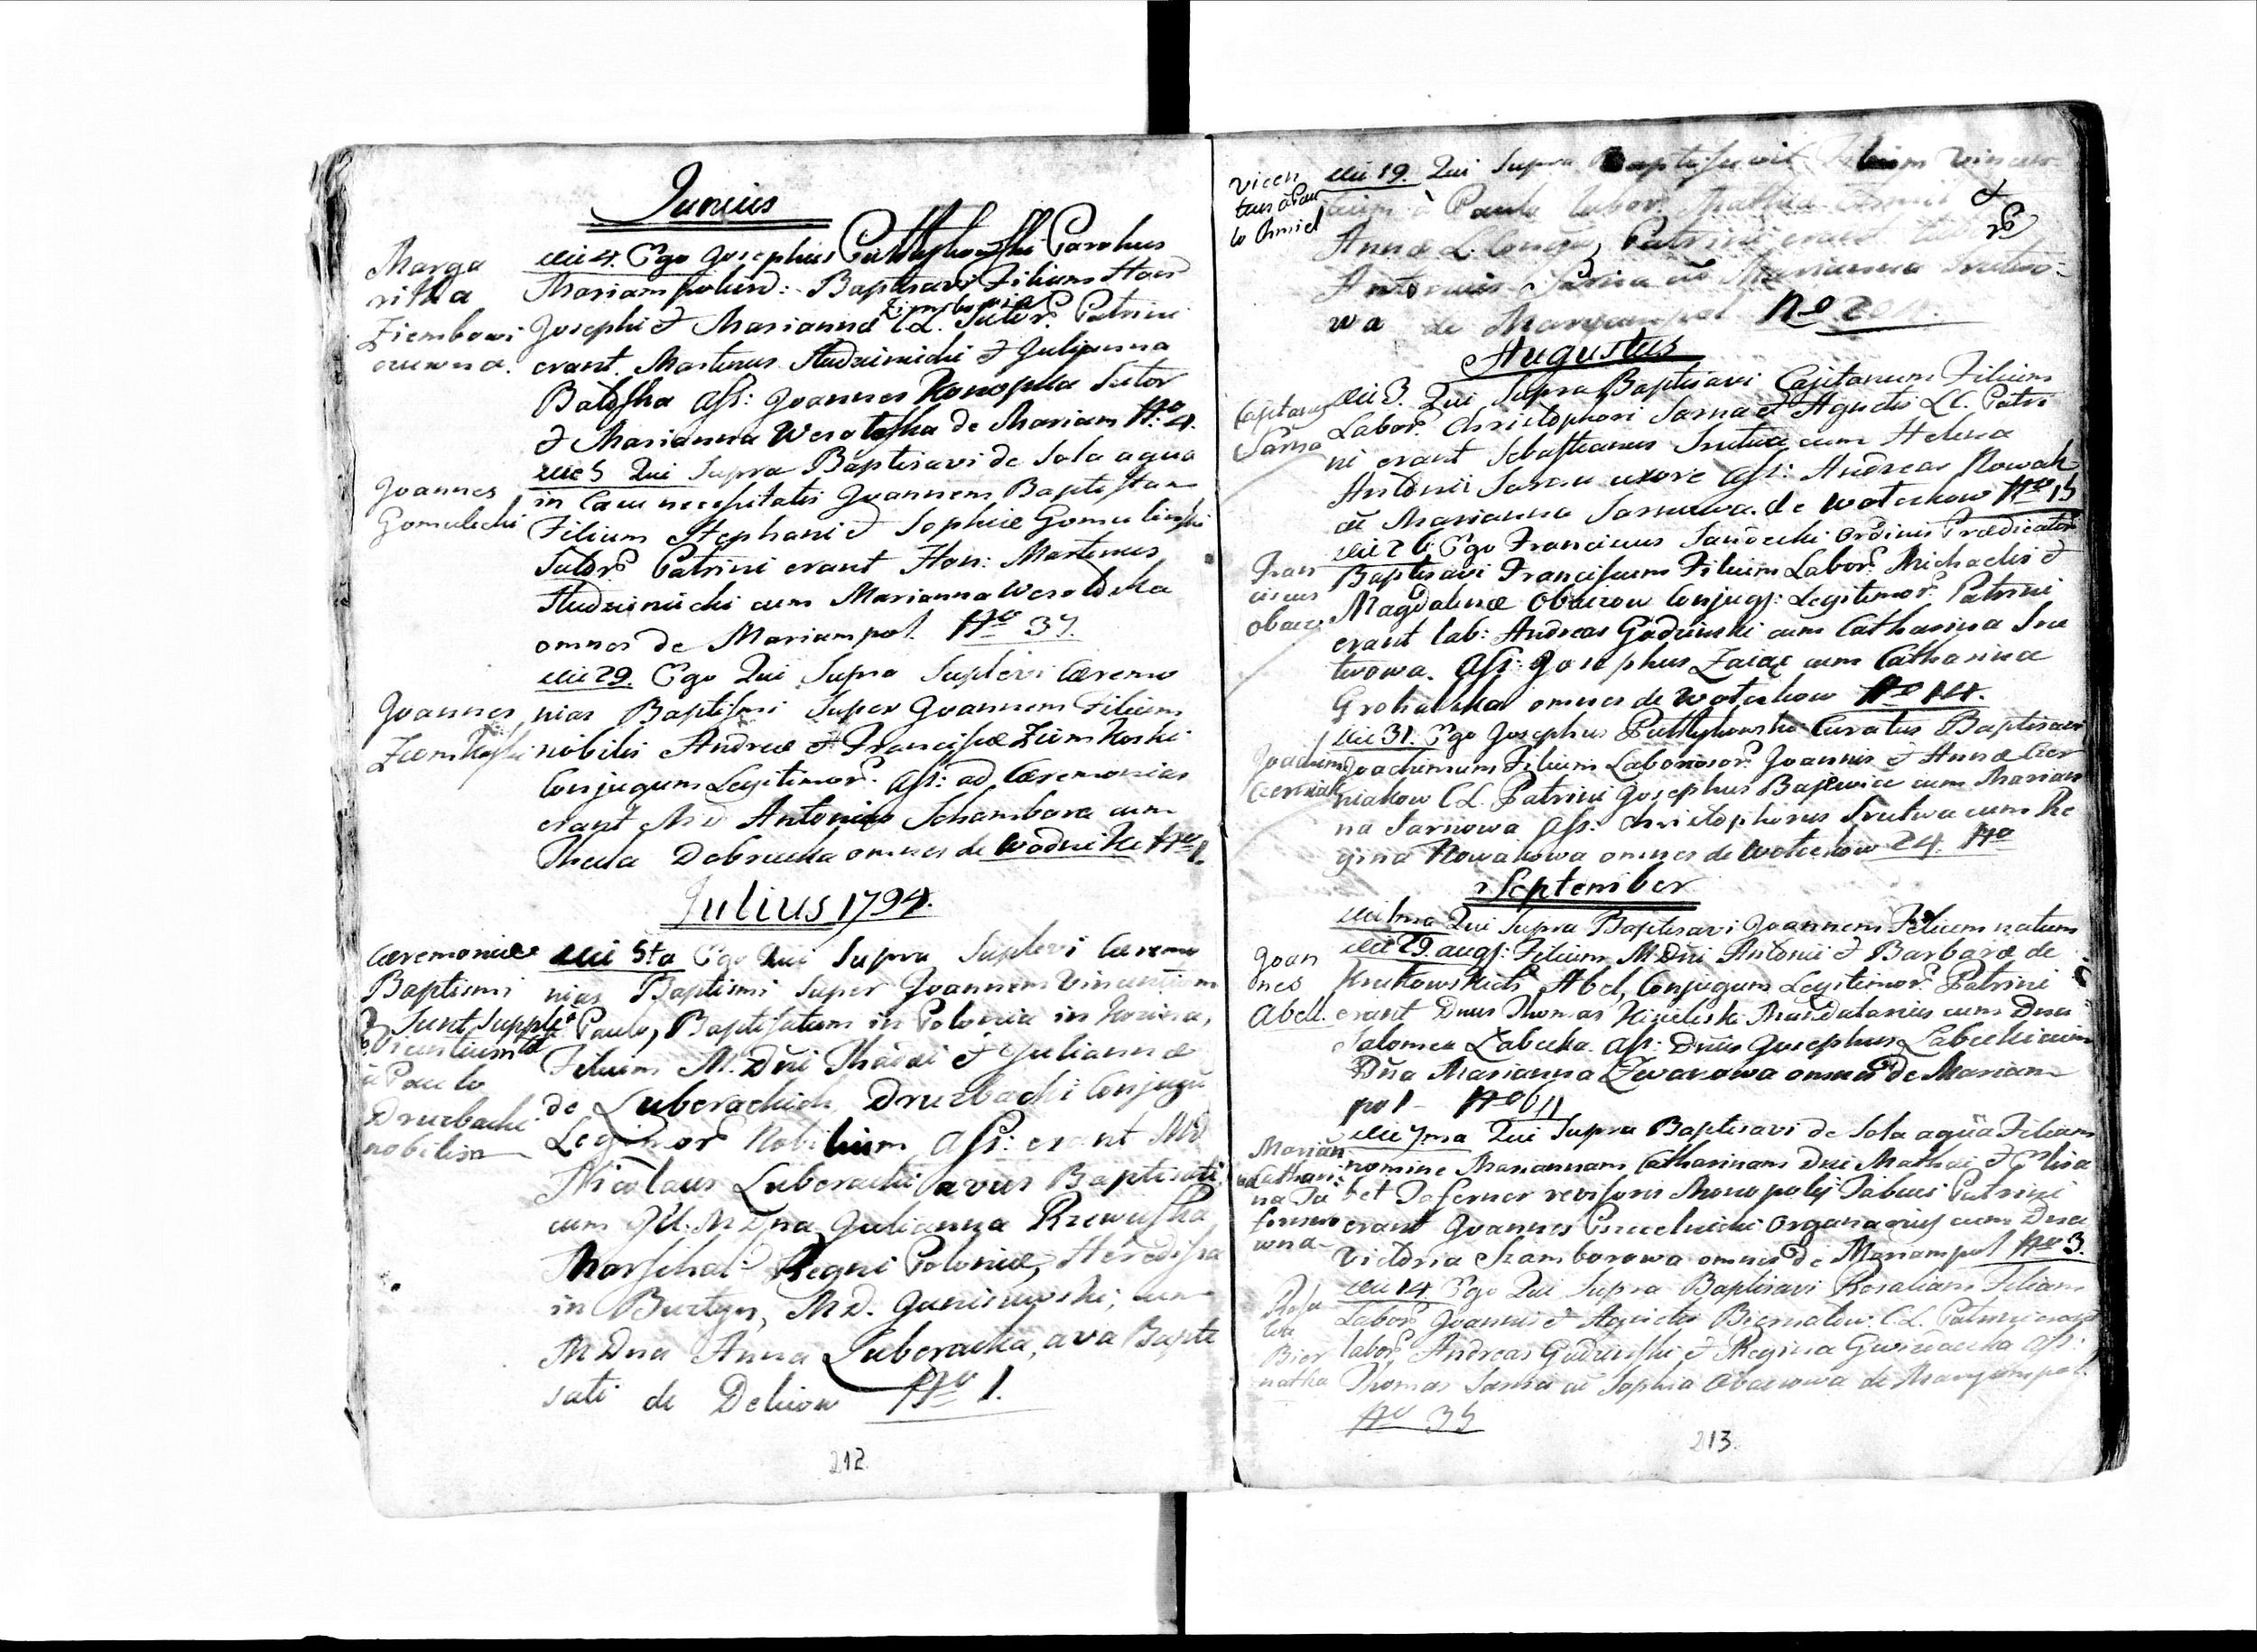 Junius
Marga
ritha
Ziembowi
czuwna.
die 4. Ego Josephus Parohus
Mariampolien: Baptisavi Filiam Hon
Josephi & Marianna C.L. Sutor. Patrini
erant. Martinus Studzinicki & Julianna
Batoska Ass: Joannes Konopka Sutor
& Marianna Wesotoska de Mariam No: 4.
Joannes
Gomulecki
die 5 Qui Supra Baptisavi de Sola aqua
in Casu necessitatis Joannem Baptistam
Filium Stephani & Sophiæ Gomulinski
Sutor. Patrini erant Hon: Martinus
Studzinicki cum Marianna Wesotoska
omnes de Mariampol. No 37.
Joannes
Ziemkoski
die 29. Ego Qui Supra Suplevi Cæremo
nias Baptismi Super Joannem Filium
nobilis Andreæ & Franciscæ Ziemkoski
Conjugum Legitimor. Ass: ad Cæremonias
erant MD Antonius Schambora cum
Thecla Dobrucka omnes de Wodniki No 1.
Julius 1794.
Cæremoniæ
Baptismi
Sunt Supple
Vicentium
à Paulo
Druzbacki
nobilis
die 5ta Ego Qui Supra Suplevi Cæremo
nias Baptismi Super Joannem Vincentium
à Paulo, Baptisatum in Polonia in
Filium M. Dni Thadæi & Juliannæ
de Luberackich Druzbacki Conjugu
Legitimor Nobilium Ass: erant MD
Nicolaus Luberacki avus Baptisati,
cum Julianna Rzewuska
Marschal: Regni Poloniæ, Heredissa
in Burtyn, MD. Juniszewski, cum
M Dna Anna Luberacka, ava Bapti
sati de Deliow No 1.
212.
Vicen
tius à Pau
lo Chmiel
die 19. Qui Supra Baptisavit Filium Vincen
tium à Paulo Labor. Mathiæ Chmiel &
Annæ L. Conjug, Patrini erant
Antonius Sarna cū Marianna Srutwo
wa de Mariampol No 20
Augustus
Cajetanus
Sarna
die 3. Qui Supra Baptisavi Cajetanum Filium
Labor. Christophori Sarna & Agnetis L.C. Patri
ni erant Sebastianus Srutwa cum Helena
Antonii Sarna uxore Ass: Andreas Nowak
cū Marianna Sarnowa. de Wotczkow No 15
Fran
ciscus
Obacz
die 26 Ego Franciscus Sanocki Ordinis Prædicator
Baptisavi Franciscum Filium Labor. Michaelis &
Magdalenæ Obaczow Conjugs: Legitimor. Patrini
erant Lab: Andreas Gudzinski cum Catharina Sru
twowa. Ass: Josephus Zaiac cum Catharina
Grohalska omnes de Wotczkow No 14.
Joachim
Czerniak
die 31. Ego Josephus Curatus Baptisavi
Joachimum Filium Laboriosor. Joannis & Annæ Czer
niakow C.L. Patrini Josephus Bajewicz cum Marian
na Sarnowa Ass: Christophorus Srutwa cum Re
gina Nowakowa omnes de Wotczkow 24. No
September
Joan
nes
Abell.
die 1ma Qui Supra Baptisavi Joannem Felicem natum
die 29 augs: Filium M Dni Antonii & Barbaræ de
Krukowskich Abel, Conjugum Legitimor. Patrini
erant Dnus Thomas Kisielski Mandatarius cum Dna
Salomea Labecka. Ass: Dnus Josephus Labecki cum
Dna Marianna omnes de Mariam
pol No 61
Marian
Cathari
na Ta
ferner
owna
die 7ma Qui Supra Baptisavi de Sola aqua Filiam
nomine Mariannam Catharinam Dni Mathæi & Elisa
bet Taferner revisoris Monopolij Tabaci Patrini
erant Joannes Organarius cum Dna
Victoria Szamborowa omnes de Mariampol No 3.
Rosa
lia
Bier
natka
die 14 Ego Qui Supra Baptisavi Rosaliam Filiam
Labor. Joannis & Agnetis Biernatow. C.L. Patrini erant
labor. Andreas Gudzinski & Regina Gwizdacka Ass:
Thomas Sarna cū Sophia Obaczowa de Maryampol.
No 35
213.